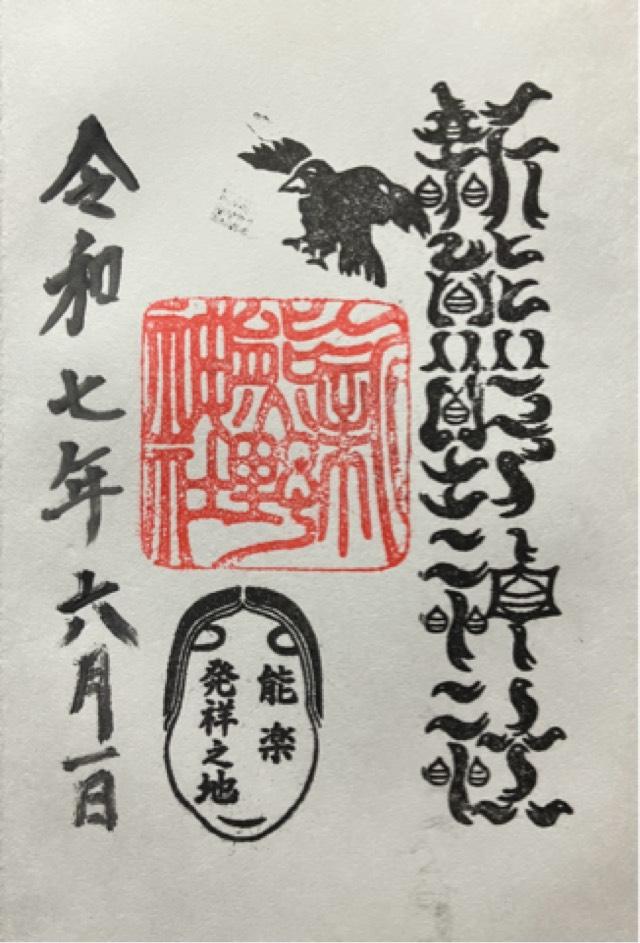 新熊野神社
新熊野神社
能楽
発祥之地
令和七年六月一日